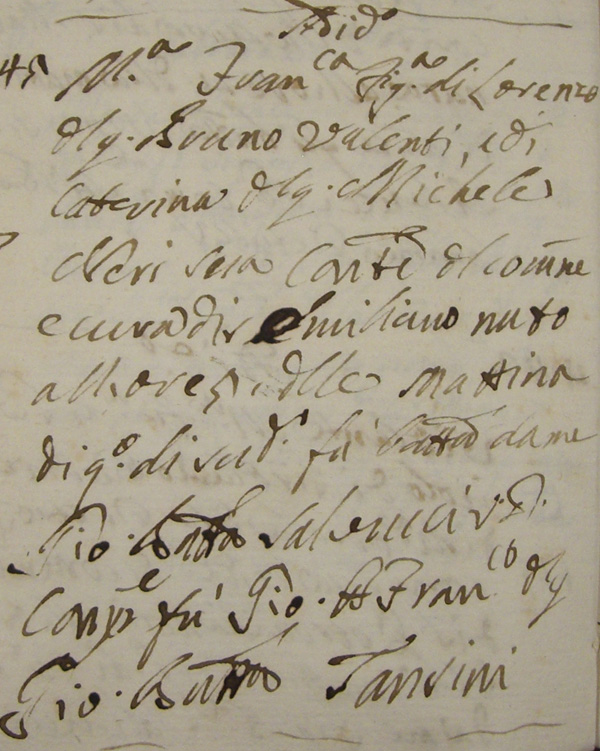 Adi d.o
45 M.a Fran.ca fig.a di Lorenzo
dlq. Bruno Valenti, e di
Caterina dlq. Michele
Neri sua Conte dl comne
e cura di S. Emiliano nato
all'ore 5 dlle mattina
di q.o di su d.o fu batta da me
Gio. Batta Salvucci V.P.
Compe fu Gio. Fran.co dlq
Gio. Batta Tansini